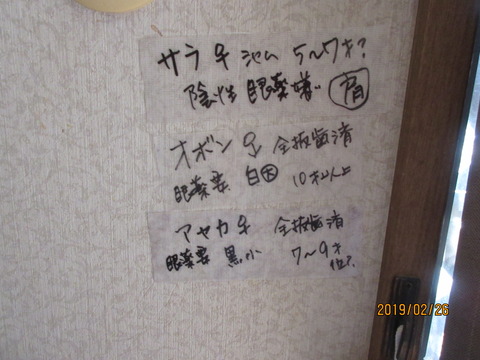 サラ ♀ シャム 5〜7才?
陰性 眼薬嫌い 腎
オボン ♀ 全抜歯済
眼薬要 白大 10才以上
アヤカ ♀ 全抜歯済
眼薬要 黒小 7〜9才
位?
2019/02/26